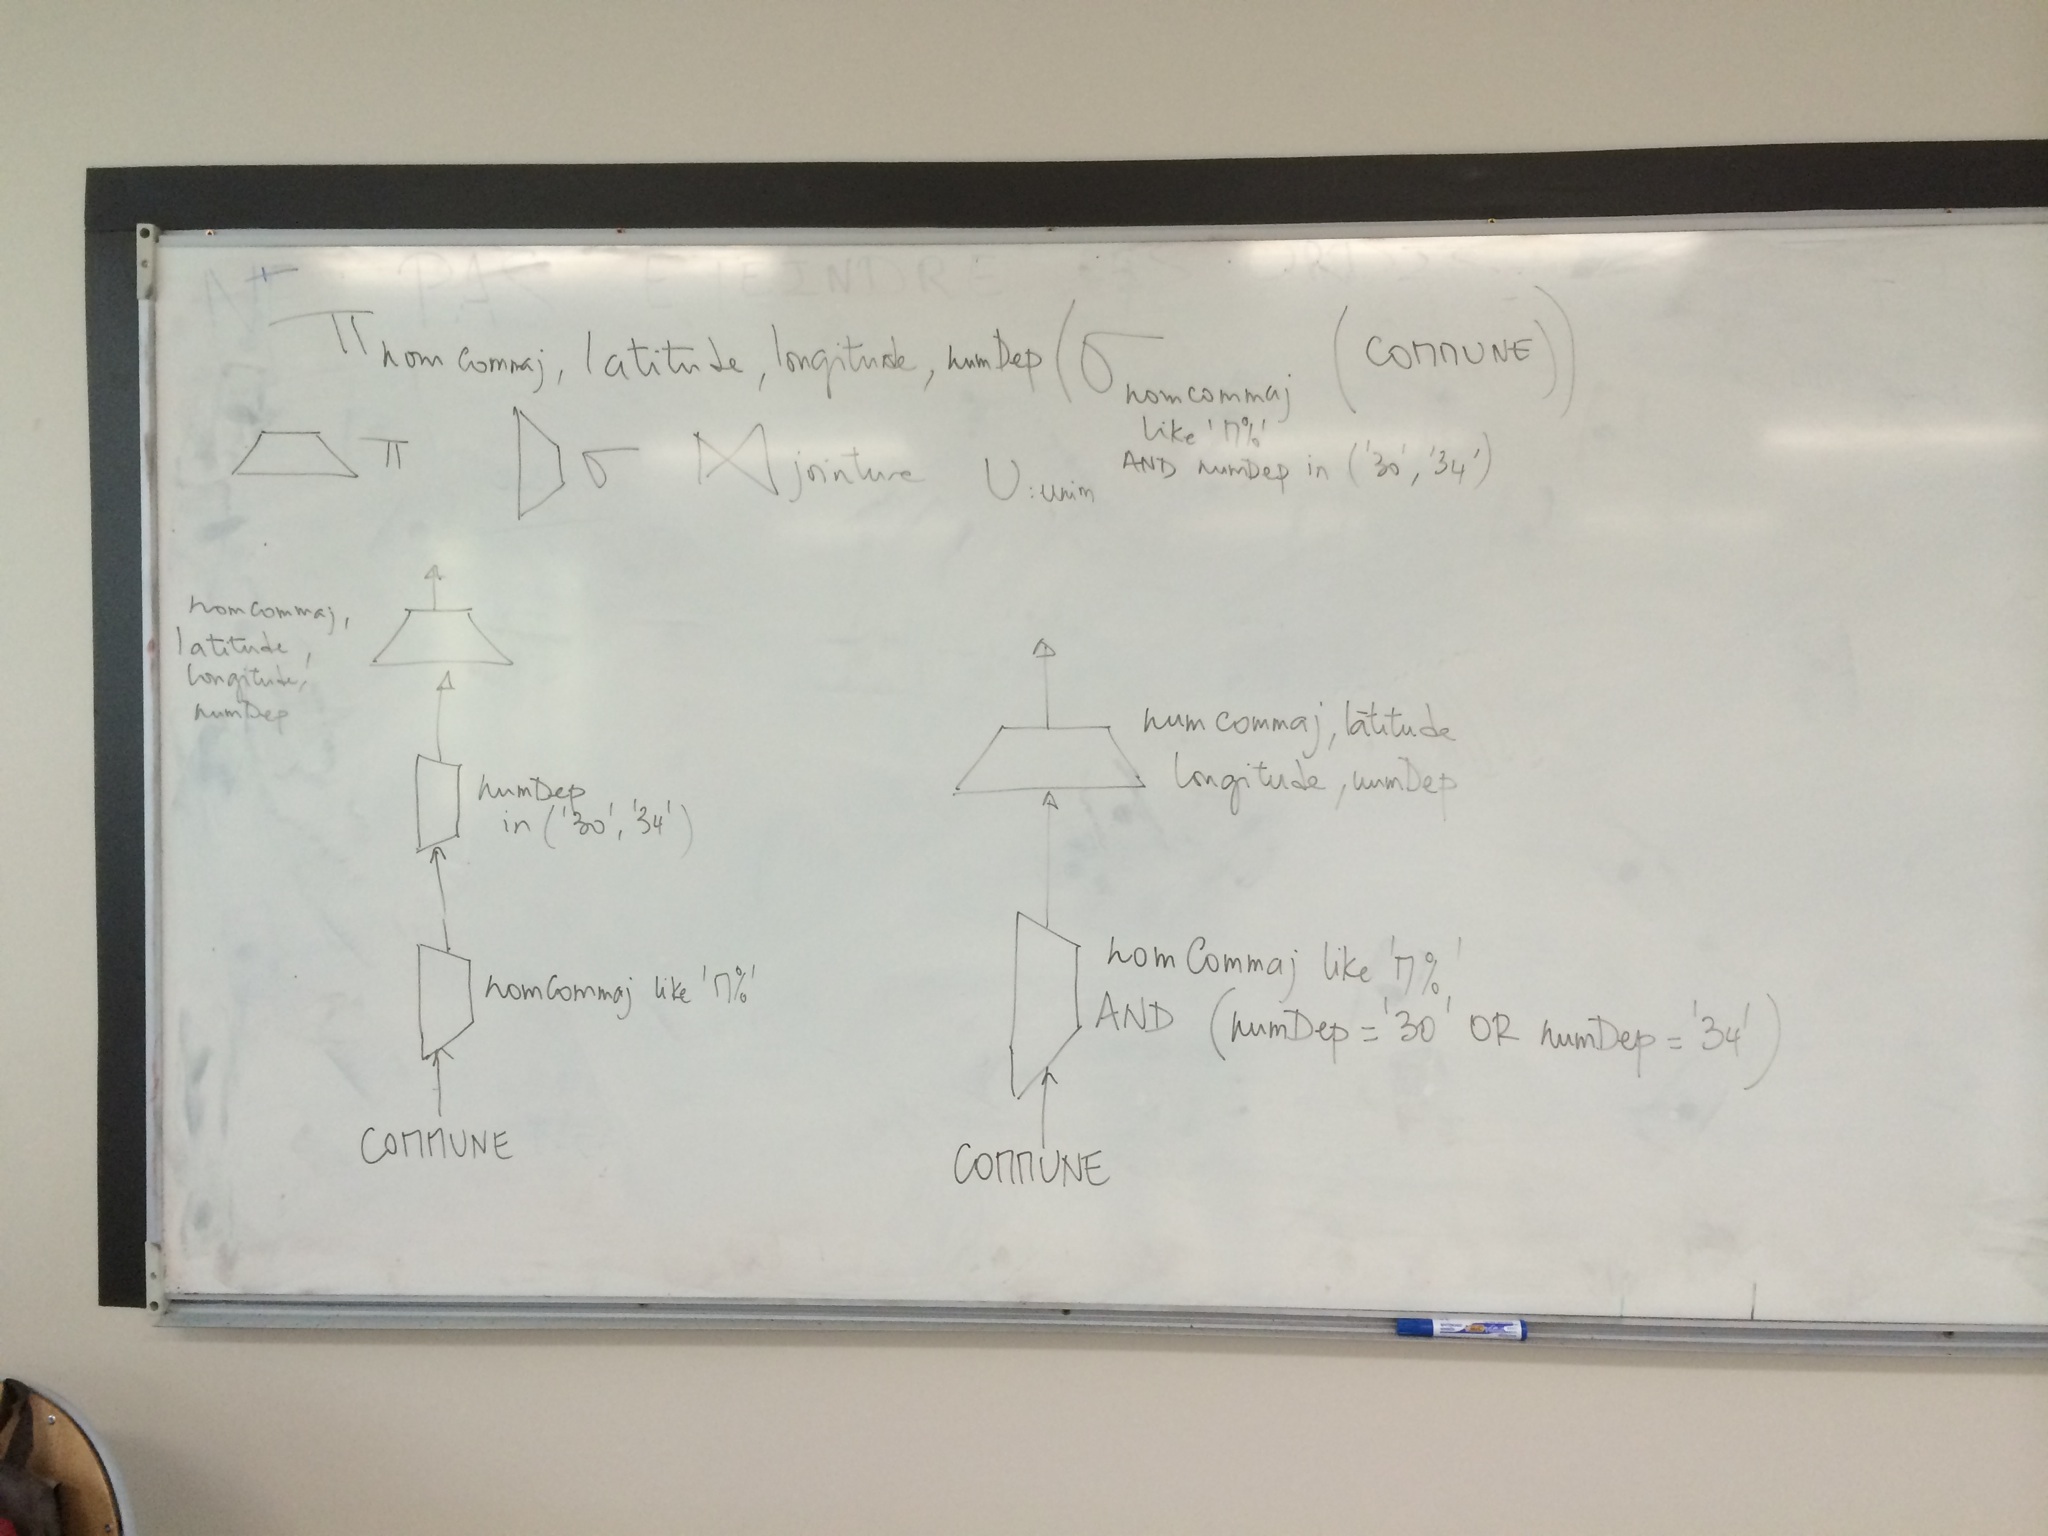 π nomCommaj, latitude, longitude, numDep (σ nomcommaj (COMMUNE))
like 'M%'
AND numDep in ('30', '34')
π σ ⋈ jointure U : union
nomCommaj,
latitude,
longitude,
numDep
numDep
in ('30', '34')
nomCommaj like 'M%'
COMMUNE
numcommaj, latitude
longitude, numDep
nomCommaj like 'M%'
AND (numDep = '30' OR numDep = '34')
COMMUNE
PAS ETEINDRE